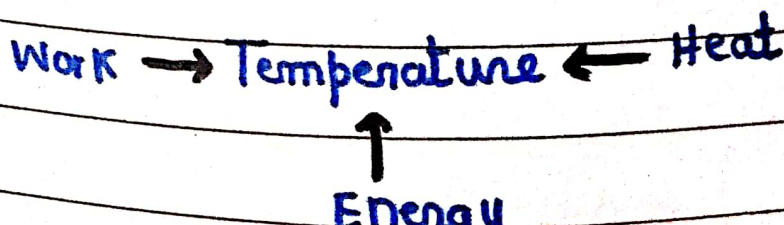 Work → Temperature ← Heat
↑
Energy